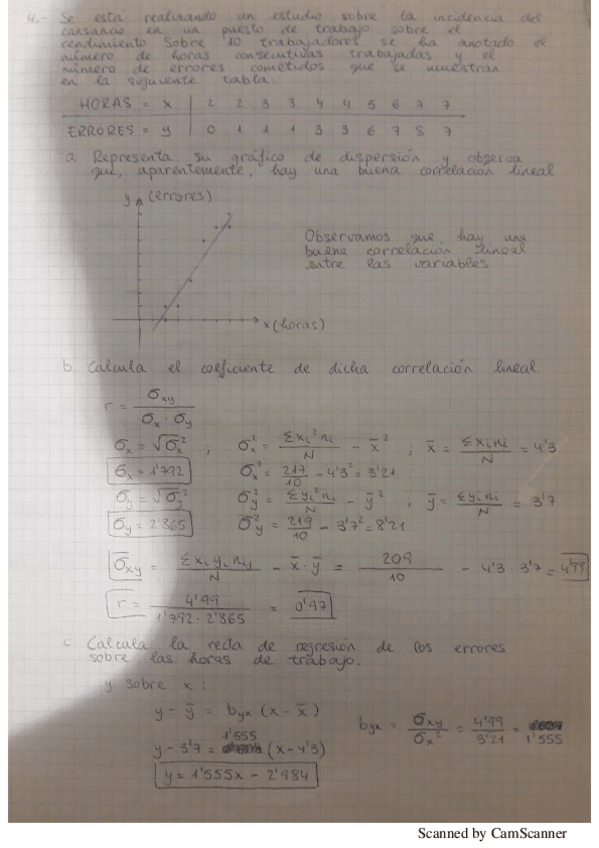 4.- Se está realizando un estudio sobre la incidencia del
cansancio en un puesto de trabajo sobre el
rendimiento Sobre 10 trabajadores se ha anotado el
número de horas consecutivas trabajadas y el
número de errores cometidos que se muestran
en la siguiente tabla:
HORAS = x 2 2 3 3 4 4 5 6 7 7
ERRORES = y 0 1 1 1 3 3 6 7 8 7
a Representa su gráfico de dispersión y observa
que, aparentemente, hay una buena correlación lineal
y (errores)
Observamos que hay una
buena correlación lineal
entre las variables
x (horas)
b Calcula el coeficiente de dicha correlación lineal.
r = σxy / σx · σy
σx = √σx² ; σx² = Σxi²ni / N - x̄² ; x̄ = Σxini / N = 4'3
σx = 1'792 σx² = 217/10 - 4'3² = 3'21
σy = √σy² σy² = Σyi²ni / N - ȳ² ; ȳ = Σyini / N = 3'7
σy = 2'865 σy² = 219/10 - 3'7² = 8'21
σxy = Σxi yi nij / N - x̄ · ȳ = 209 / 10 - 4'3 · 3'7 = 4'99
r = 4'99 / 1'792 · 2'865 = 0'97
c Calcula la recta de regresión de los errores
sobre las horas de trabajo.
y sobre x :
y - ȳ = byx (x - x̄) byx = σxy / σx² = 4'99 / 3'21 = 1'555
y - 3'7 = 1'555 (x - 4'3)
y = 1'555x - 2'984
Scanned by CamScanner